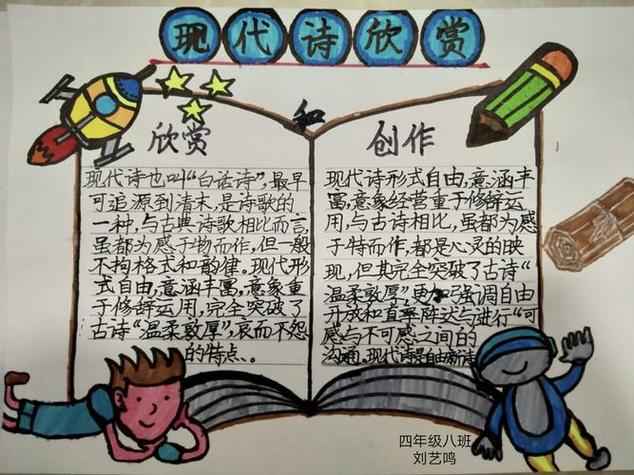 现代诗欣赏
和
欣赏
现代诗也叫“白话诗”,最早
可追源到清末,是诗歌的
一种,与古典诗歌相比而言,
虽都为感于物而作,但一般
不拘格式和韵律。现代形
式自由,意涵丰富,意象重
于修辞运用,完全突破了
古诗“温柔敦厚”,哀而不怨
的特点、。
创作
现代诗形式自由,意涵丰
富,意象经营重于修辞运
用,与古诗相比,虽都为感
于特而作,都是心灵的映
现,但其完全突破了古诗“
温柔敦厚,更加强调自由
开放和直率陈述与进行“可
感与不可感之间的
沟通。现代诗是自由新诗
四年级八班
刘艺鸣